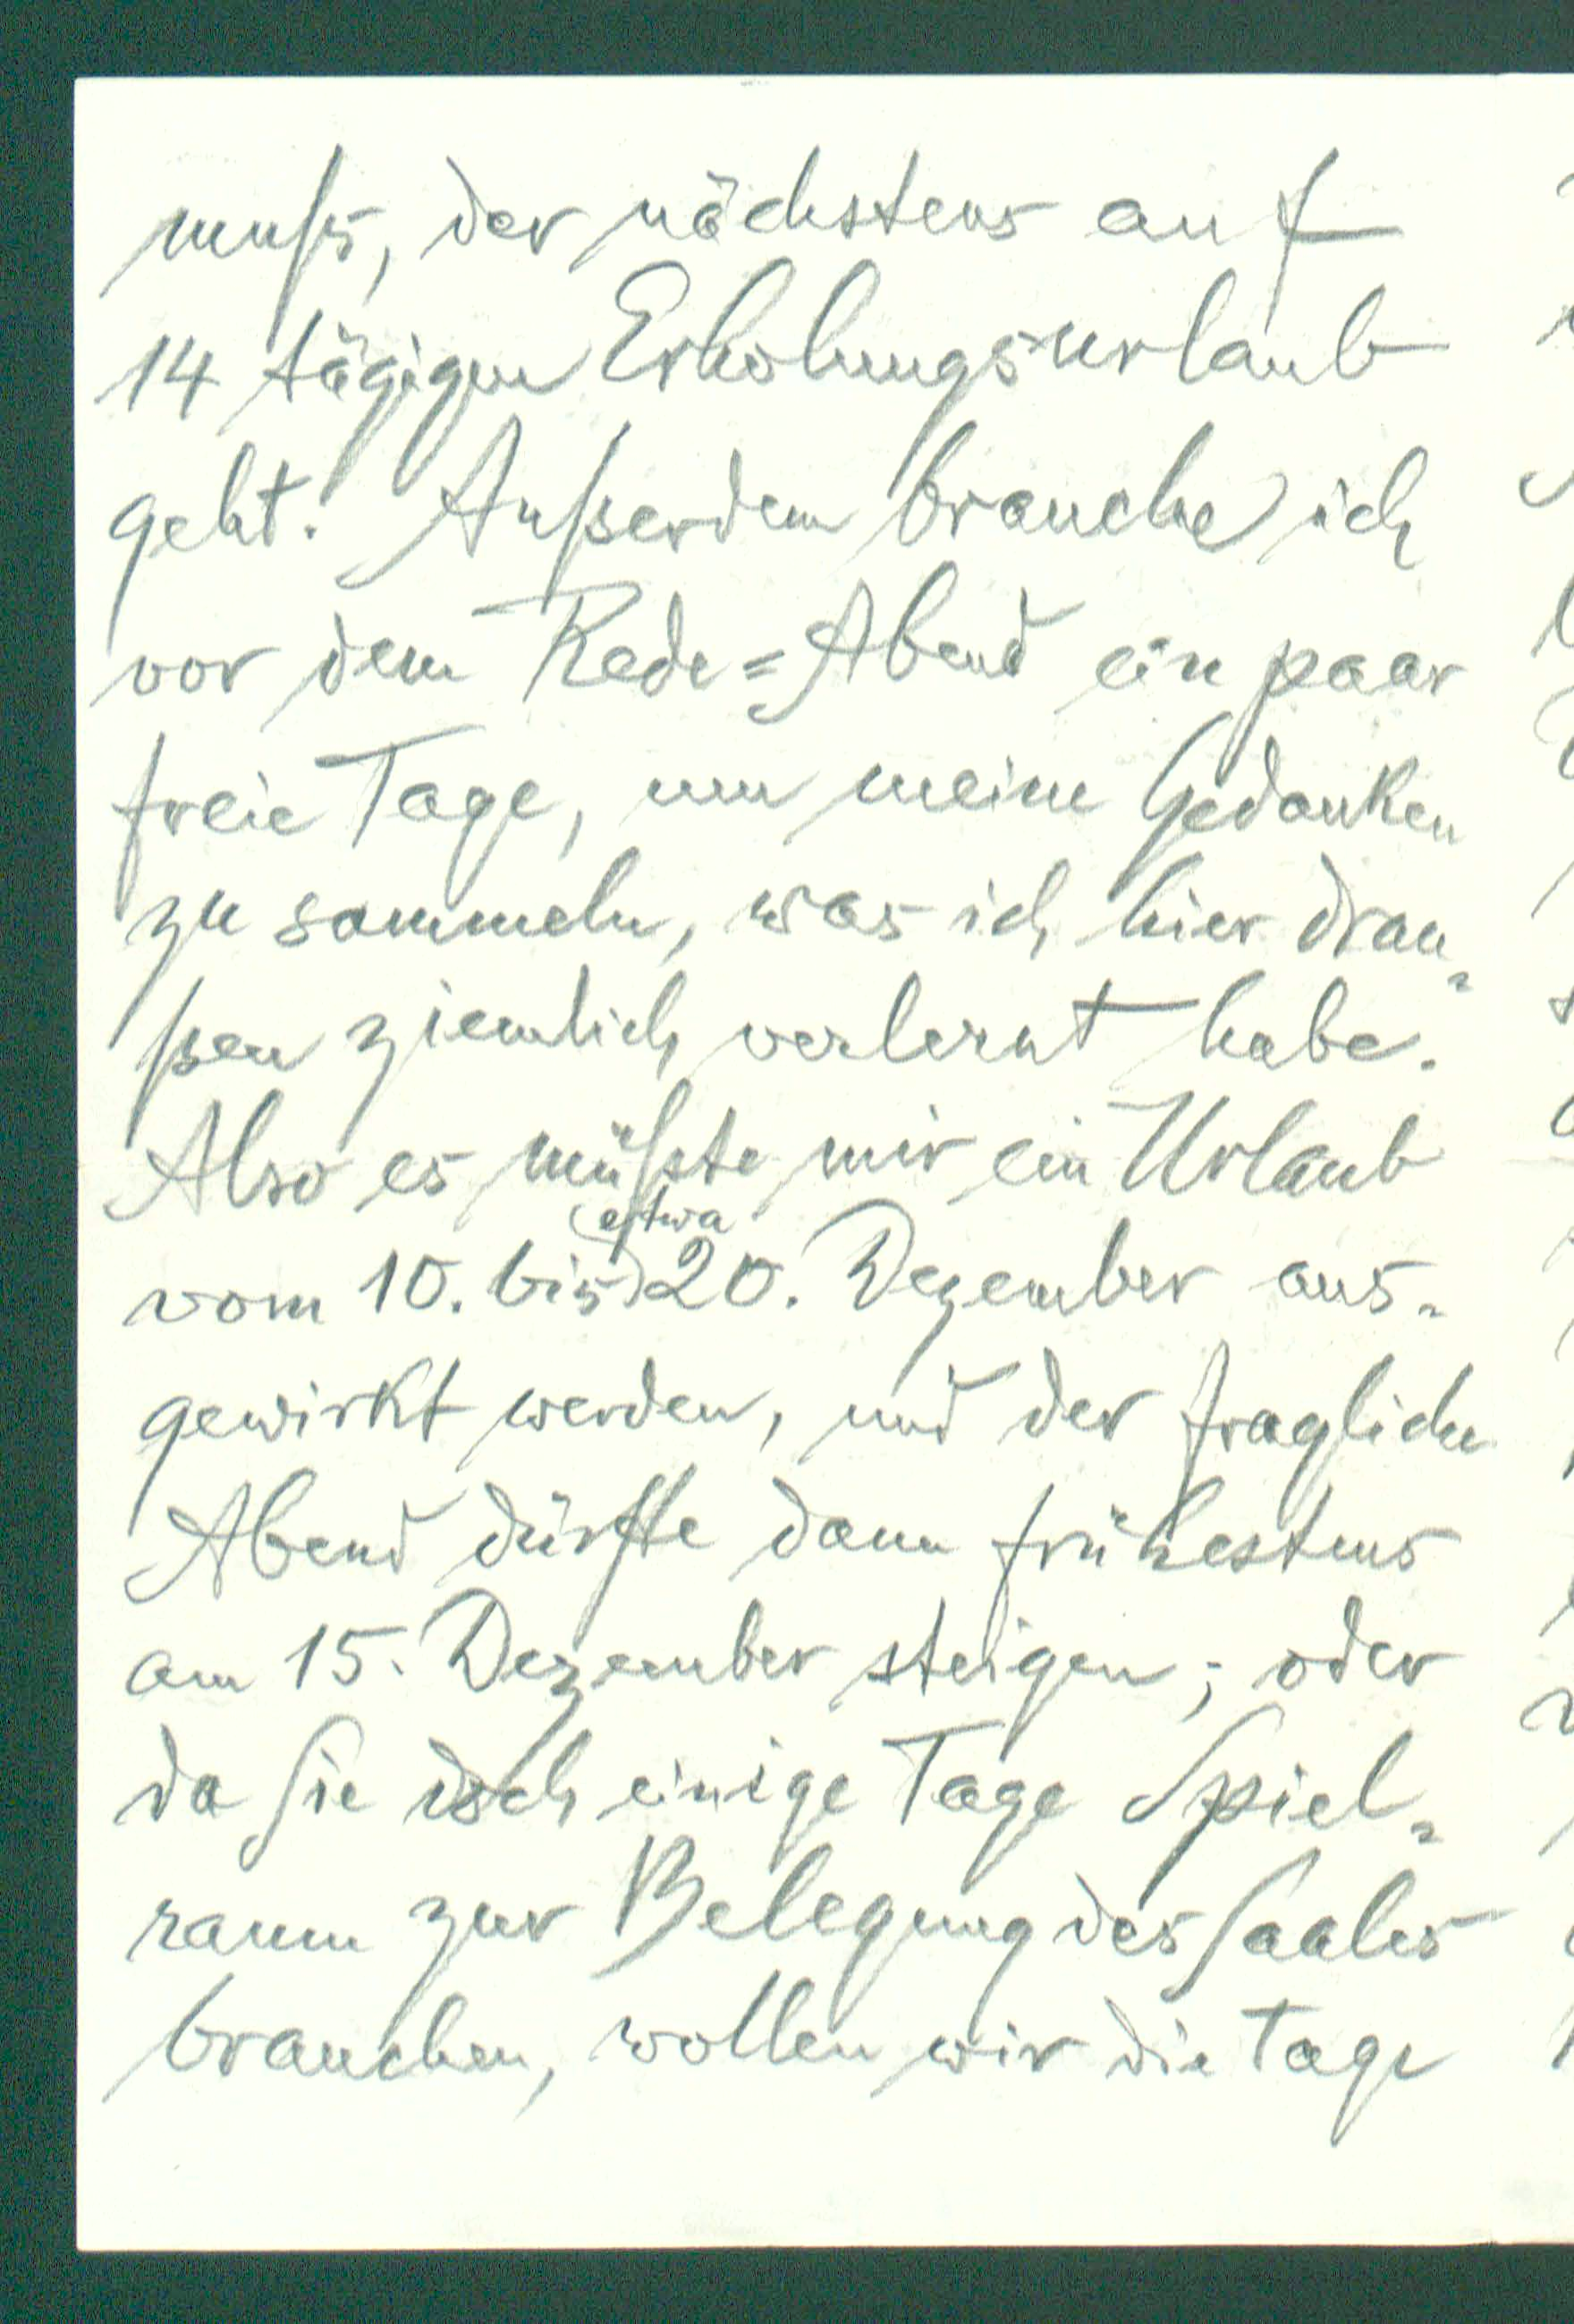 muß, der nächstens auf
14 tägigen Erholungsurlaub
geht. Außerdem brauche ich
vor dem Rede=Abend ein paar
freie Tage, um meine Gedanken
zu sammeln, was ich hier drau=
ßen ziemlich verlernt habe.
Also es müßte mir ein Urlaub
vom 10. bis (etwa) 20. Dezember aus=
gewirkt werden, und der fragliche
Abend dürfte dann frühestens
am 15. Dezember steigen; oder
da Sie doch einige Tage Spiel=
raum zur Belegung des Saales
brauchen, wollen wir die Tage